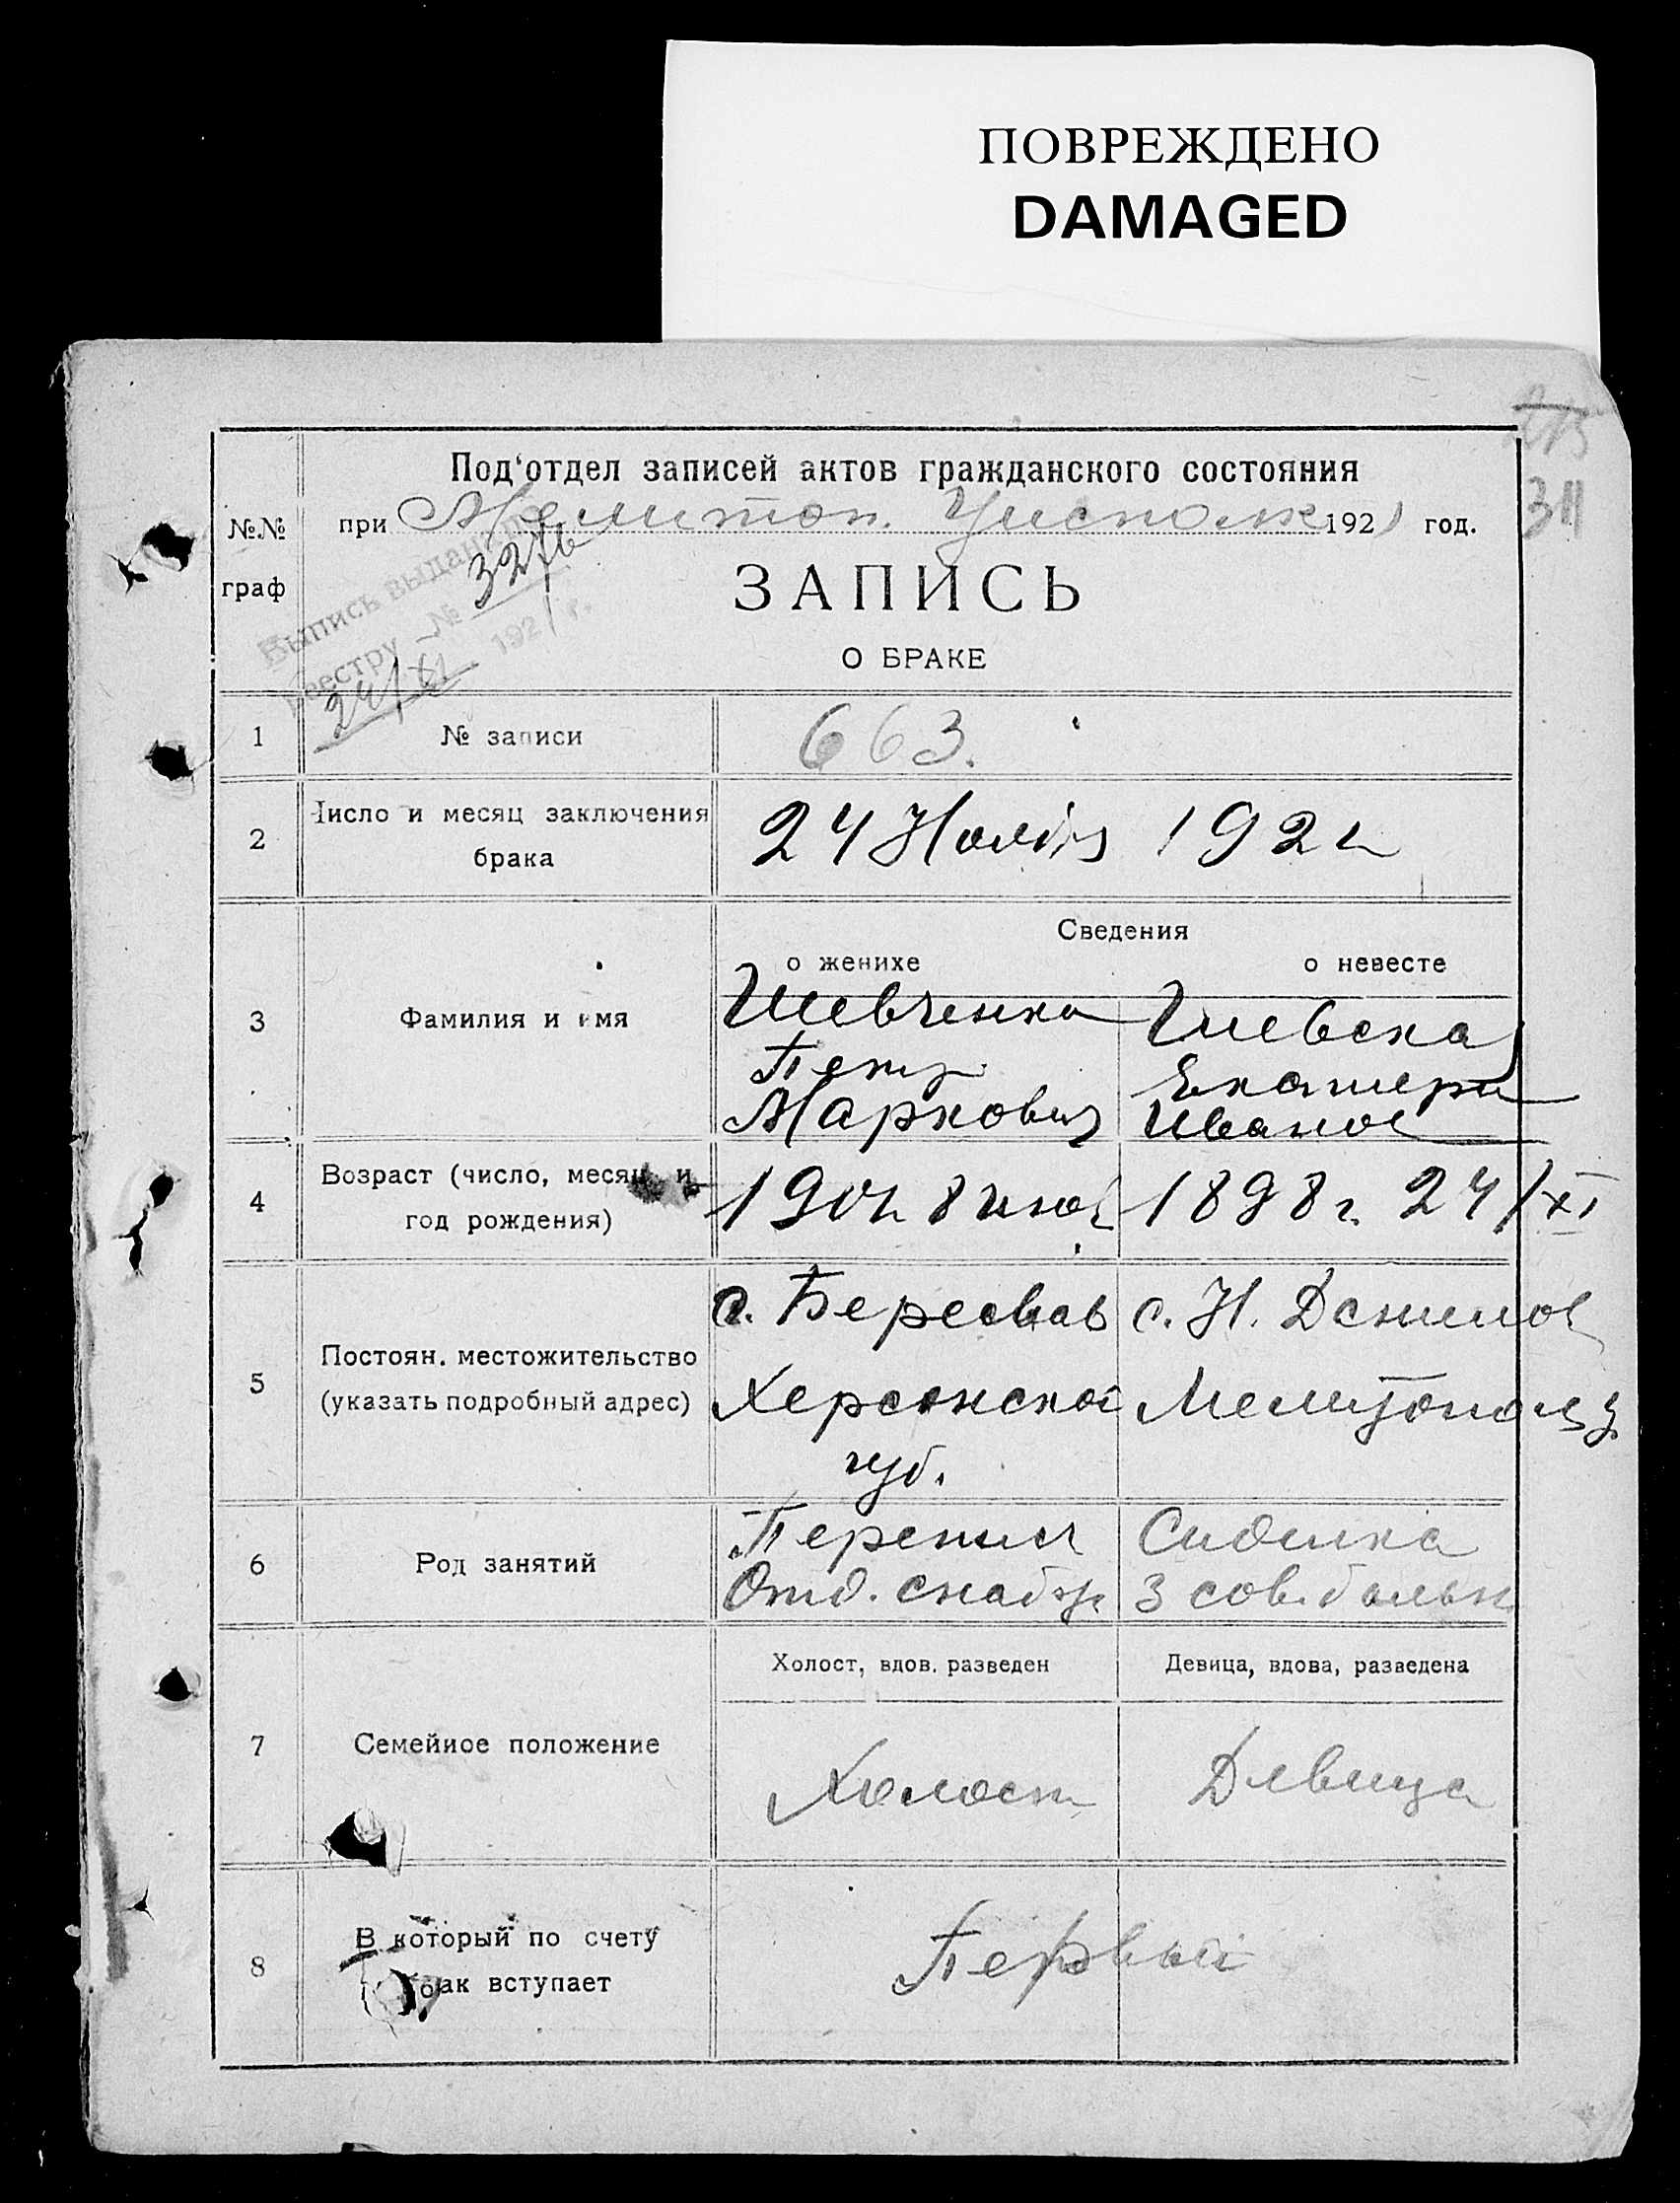 ПОВРЕЖДЕНО
DAMAGED
315
311
Под‘отдел записей актов гражданского состояния
№№ граф
при Мелитоп. Уисполк 1921 год.
Выпись выдана по
реестру № 3276
24/XI 1921 г.
ЗАПИСЬ
О БРАКЕ
1 № записи 663.
2 Число и месяц заключения брака 24 Ноября 1921
Сведения
о женихе о невесте
3 Фамилия и имя
Шевченко
Петр
Маркович
Екатери
Иванов
4 Возраст (число, месяц и год рождения)
1901 8 июл 1898 г. 24/XI
5 Постоян. местожительство
(указать подробный адрес)
с. Береслав
Херсонской
губ.
с. Н. Данилов
Мелитополь у.
6 Род занятий
Перепис
Отд. снабж.
Сиделка
3 сов. больн.
Холост, вдов. разведен Девица, вдова, разведена
7 Семейное положение Холост Девица
8 В который по счету
брак вступает Первый